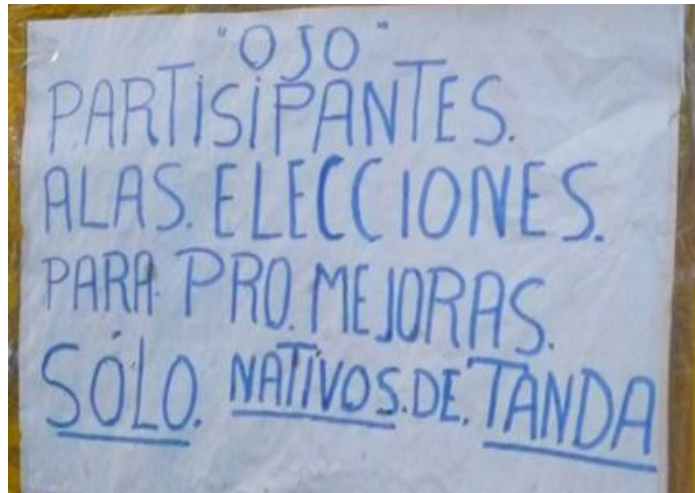 "OJO"
PARTISIPANTES.
ALAS. ELECCIONES.
PARA. PRO. MEJORAS.
SÓLO. NATIVOS. DE. TANDA